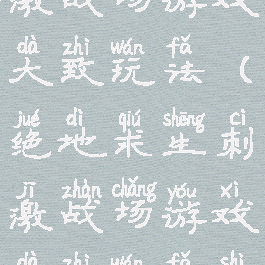 激战场游戏
dà zhì wán fǎ
大致玩法（
jué dì qiú shēng cì
绝地求生刺
jī zhàn chǎng yóu xì
激战场游戏
dà zhì wán fǎ shì